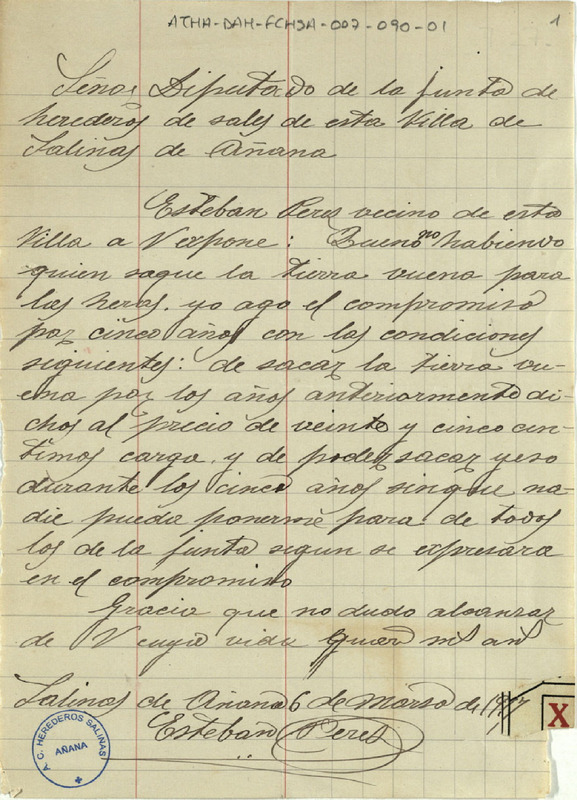 ATHA-DAH-FCHSA-007-090-01
1
Señor Diputado de la junta de
herederos de sales de esta Villa de
Salinas de Añana
Esteban Peres vecino de esta
Villa a V expone: Bueno no habiendo
quien saque la tierra vuena para
las heras. yo ago el compromiso
por cinco años con las condiciones
siguientes: de sacar la tierra vu-
ena por los años anteriormente di-
chos al precio de veinte y cinco cen-
timos carga. y de poder sacar yeso
durante los cinco años sinque na-
die pueda ponerme para de todos
los de la junta segun se expresara
en el compromiso
Gracia que no dudo alcanzar
de V cuya vida guard ms ans
Salinas de Añana 6 de Marso de
Esteban Peres
A. C. HEREDEROS SALINAS
AÑANA
X